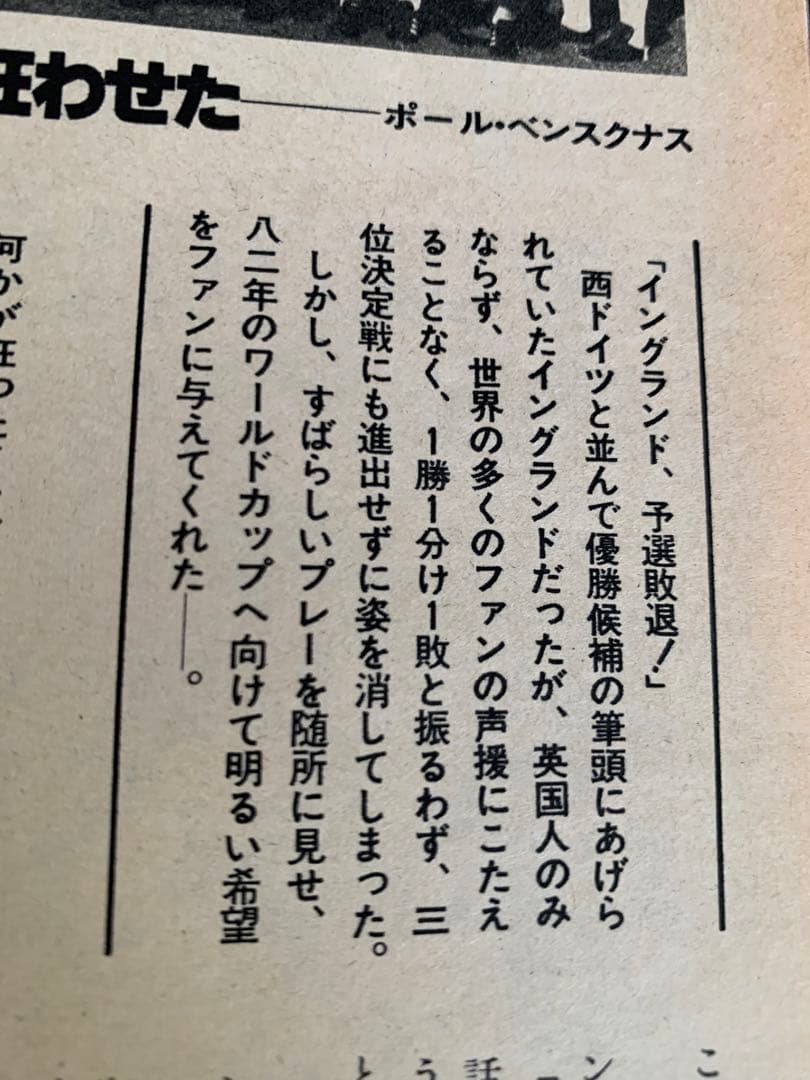 狂わせた――ポール・ベンスクナス
「イングランド、予選敗退！」
西ドイツと並んで優勝候補の筆頭にあげら
れていたイングランドだったが、英国人のみ
ならず、世界の多くのファンの声援にこたえ
ることなく、1勝1分け1敗と振るわず、三
位決定戦にも進出せずに姿を消してしまった。
しかし、すばらしいプレーを随所に見せ、
八二年のワールドカップへ向けて明るい希望
をファンに与えてくれた――。
何かが狂った